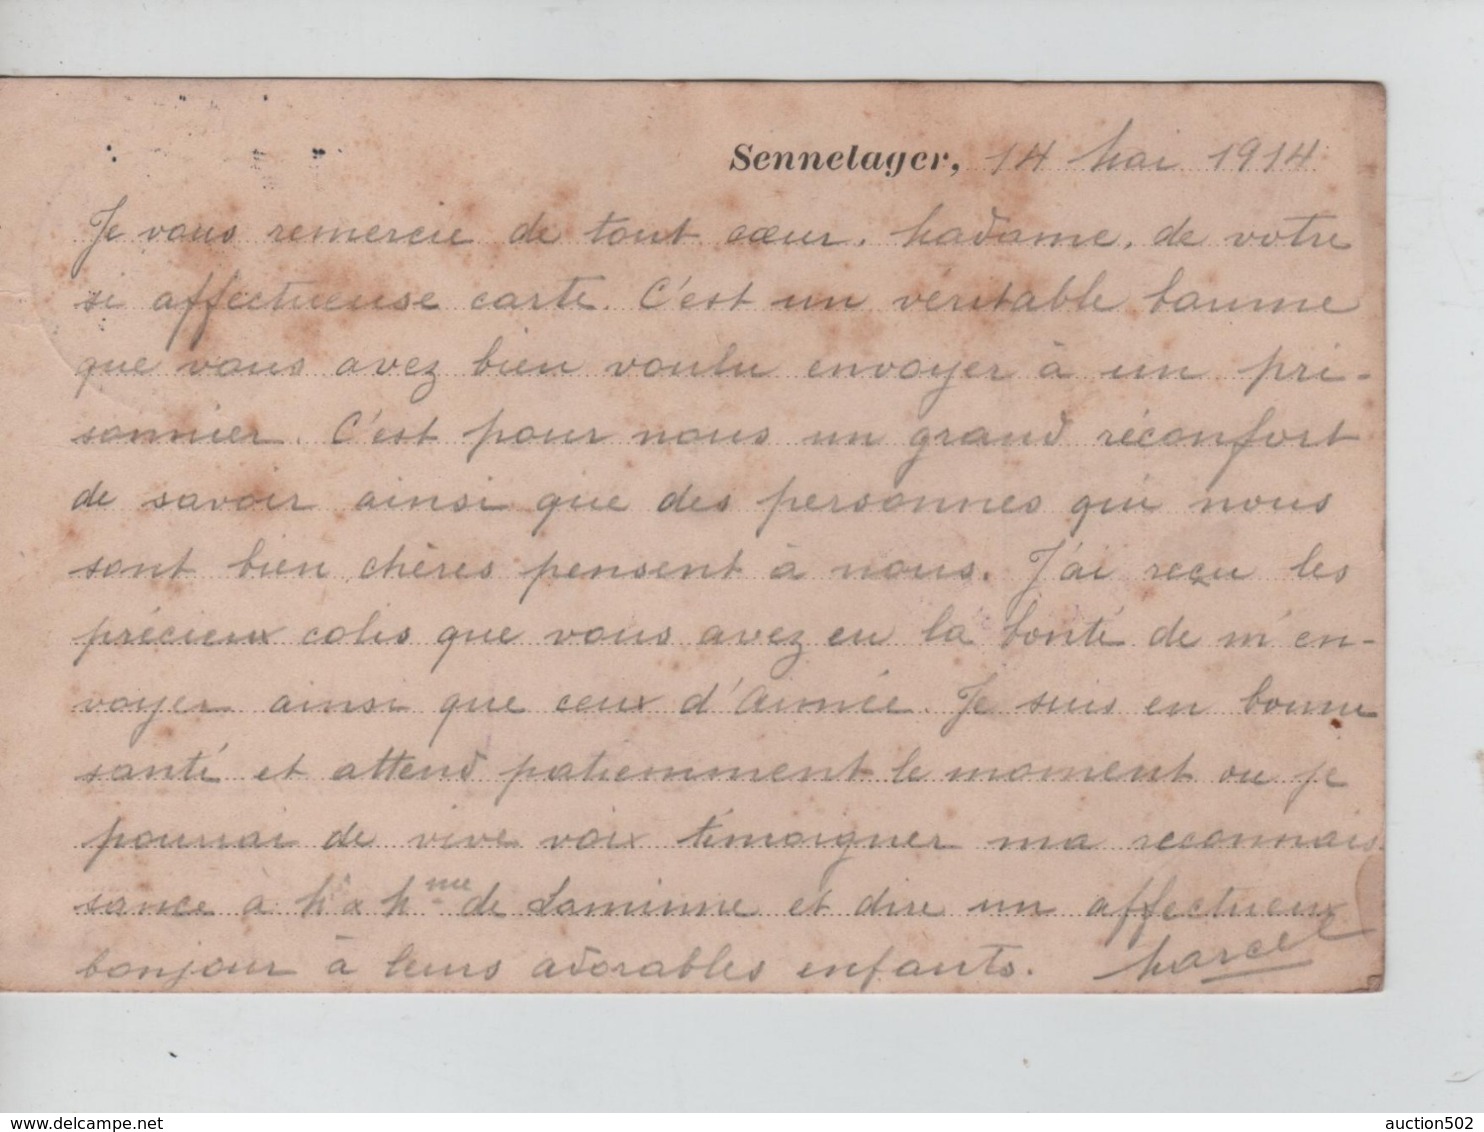 Sennelager, 14 Mai 1914
Je vous remercie de tout cœur, Madame, de votre
si affectueuse carte. C'est un véritable baume
que vous avez bien voulu envoyer à un pri-
sonnier. C'est pour nous un grand réconfort
de savoir ainsi que des personnes qui nous
sont bien chères pensent à nous. J'ai reçu les
précieux colis que vous avez eu la bonté de m'en-
voyer ainsi que ceux d'Aimée. Je suis en bonne
santé et attend patiemment le moment ou je
pourrai de vive voix témoigner ma reconnais
sance a Mr & Mme de Laminne et dire un affectueux
bonjour à leurs adorables enfants. Marcel
auction502